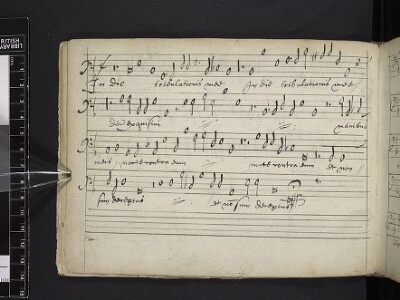 BRITISH
LIBRARY
In die tribulationis mee In die tribulationis mee
deu exquisivi manibus
meis nocte contra eum nocte contra eum et non
sum deceptus et non sum deceptus